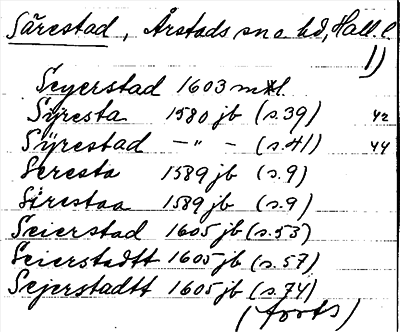 Sårestad, Årstads sn o hd, Hall. l.
1)
Seyerstad 1603 mtl
Syresta 1580 jb (s.39) 42
Sÿrestad –"– (s.41) 44
Seresta 1589 jb (s.9)
Sirestaa 1589 jb (s.9)
Seierstad 1605 jb (s.53)
Seierstadtt 1605 jb (s.57)
Sejerstadtt 1605 jb (s.74)
(forts)